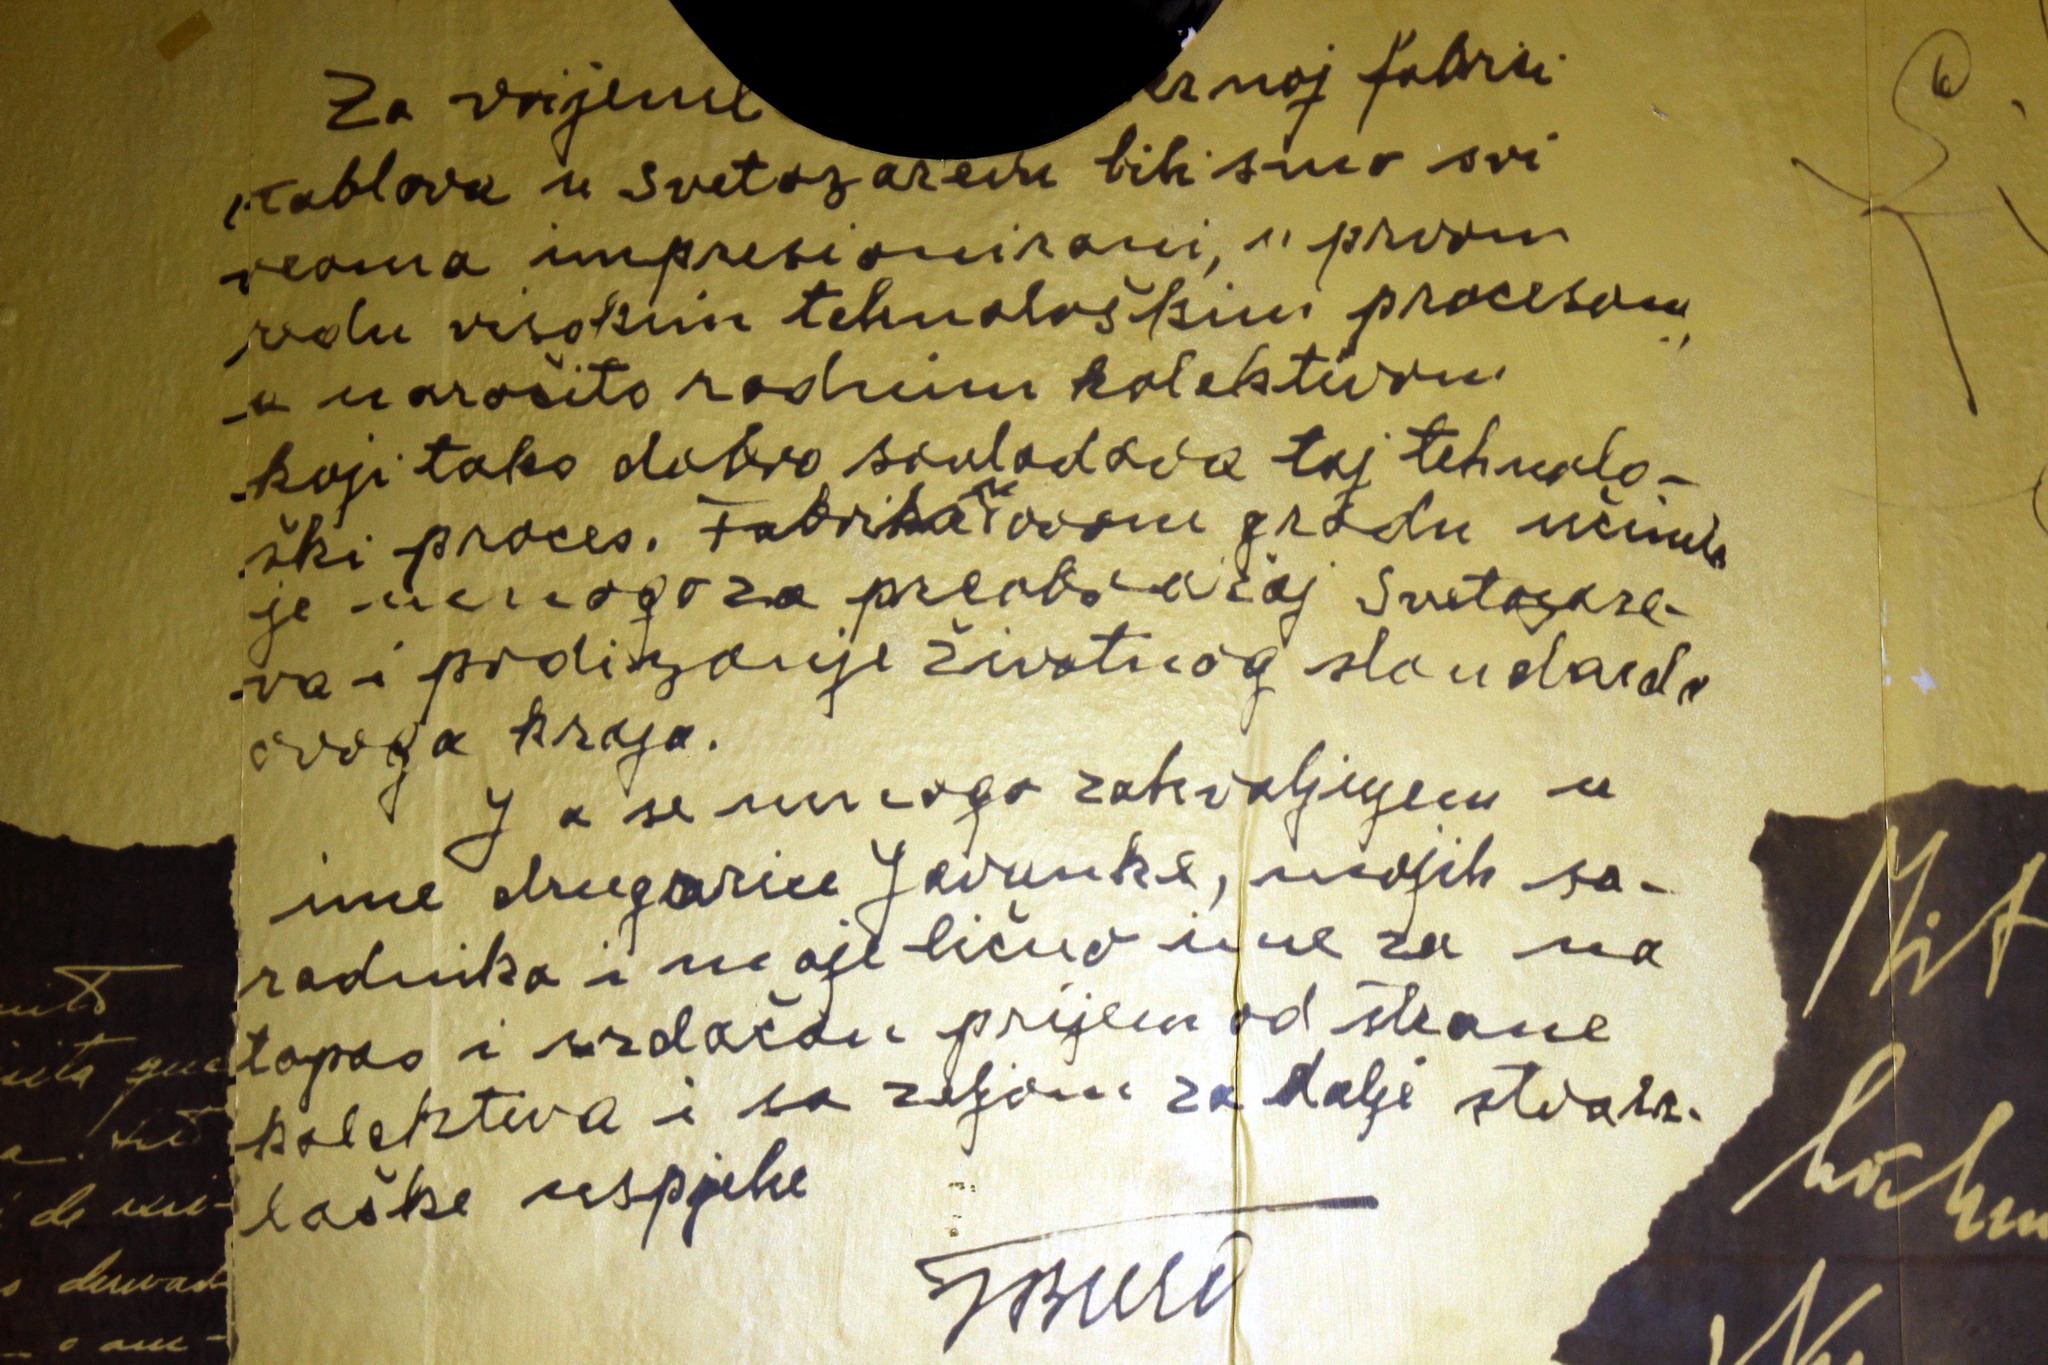 Za vrijeme ernoj fabrici
kablova u Svetozarevu bili smo svi
veoma impresionirani, u prvom
redu visokim tehnološkim procesom,
a naročito radnim kolektivom
koji tako dobro savladava taj tehnolo-
ški proces. Fabrika u ovom gradu učinila
je mnogo za preobražaj Svetozare-
va i podizanje životnog standarda
ovoga kraja.
Ja se mnogo zahvaljujem u
ime drugarice Jovanke, mojih sa-
radnika i moje lično ime za na
topao i srdačan prijem od strane
kolektiva i sa željom za dalje stvara-
laške uspjehe
Mit